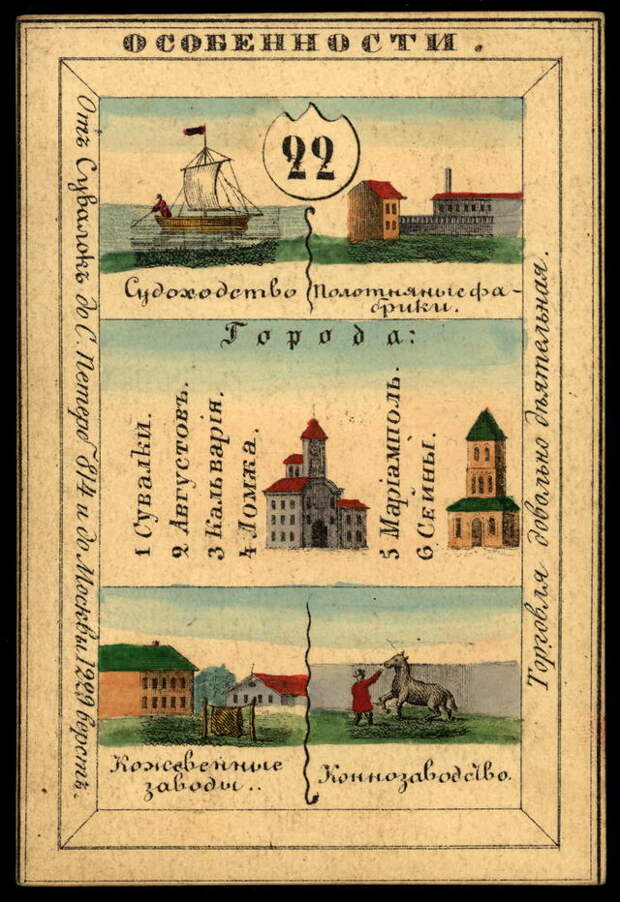 ОСОБЕННОСТИ.
22
Судоходство
Полотняные фа-
брики.
Города:
1 Сувалки.
2 Августовъ.
3 Кальварія.
4 Ломжа.
5 Маріамполь.
6 Сейны.
Кожевенные
заводы..
Коннозаводство.
Отъ Сувалокъ до С. Петерб 814 и до Москвы 1209 верстъ.
Торговля довольно дѣятельная.